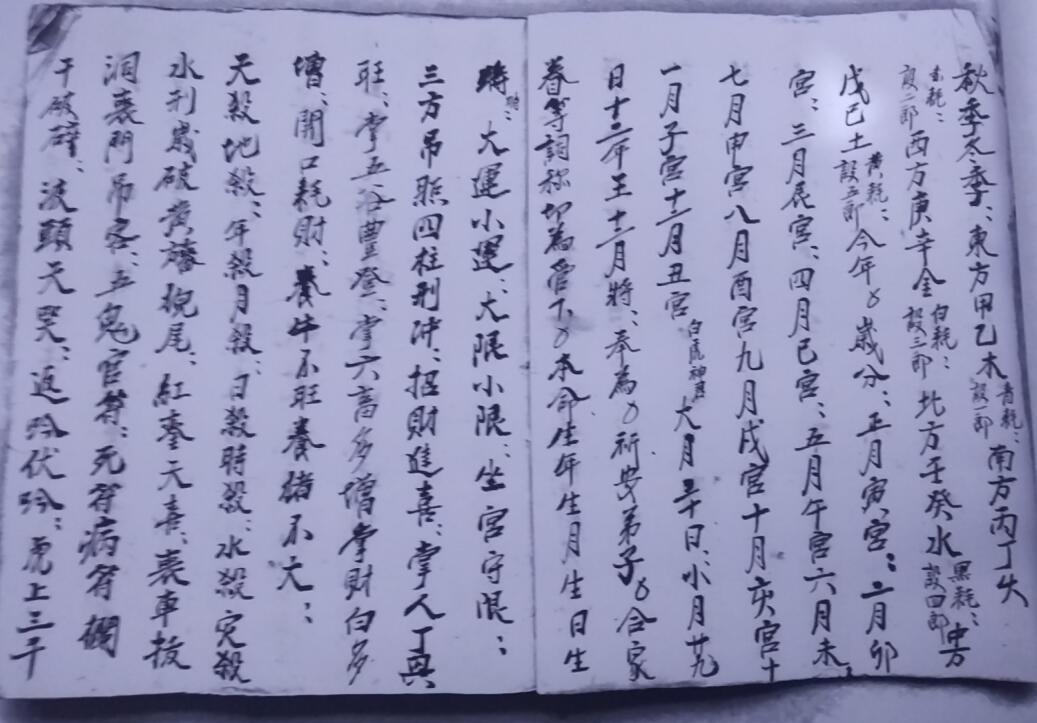 秋季冬季：東方甲乙木青耗：設一郎南方丙丁火
赤耗：設二郎西方庚辛金白耗：設三郎北方壬癸水黑耗：設四郎中方
戊己土黄耗：設五郎今年〤歲分：正月寅宮：二月卯
宮：三月辰宮：四月巳宮：五月午宮六月未
七月申宮八月酉宮九月戌宮十月亥宮十
一月子宮十二月丑宮白虎神君大月三十日：小月廿九
日十二年王十二月將：奉為〤祈安弟子〤合家
眷等詞称切為管下〤本命生年生月生日生
時：大運小運：大限小限：坐宮守限：
三方吊照四柱刑冲：招財進喜：掌人丁興
旺：掌五谷豊登：掌六畜多增掌財白多
增：開口耗財：養牛不旺養猪不大：
天殺地殺：年殺月殺：日殺時殺：水殺穴殺
水刑歲破黄旛豹尾：紅鸞天喜：喪車
洞喪門吊客：五鬼官符：死符病符欄
干破碎：波頭天哭：返吟伏吟：虎上三千